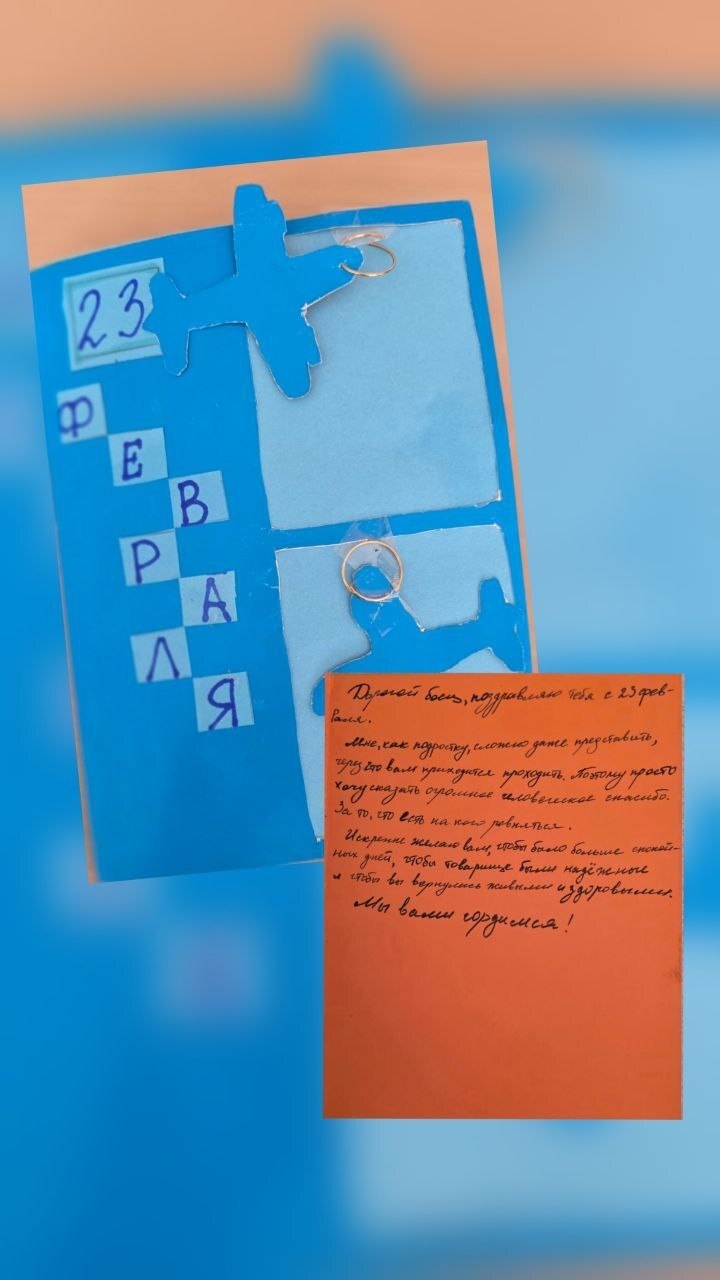 23
ФЕВРАЛЯ
Дорогой боец, поздравляю тебя с 23 фев-
раля.
Мне, как подростку, сложно даже представить,
через что вам приходится проходить. Поэтому просто
хочу сказать огромное человеческое спасибо.
За то, что есть на кого ровняться.
Искренне желаю вам, чтобы было больше спокой-
ных дней, чтобы товарищи были надёжные
и чтобы вы вернулись живыми и здоровыми.
Мы вами гордимся!